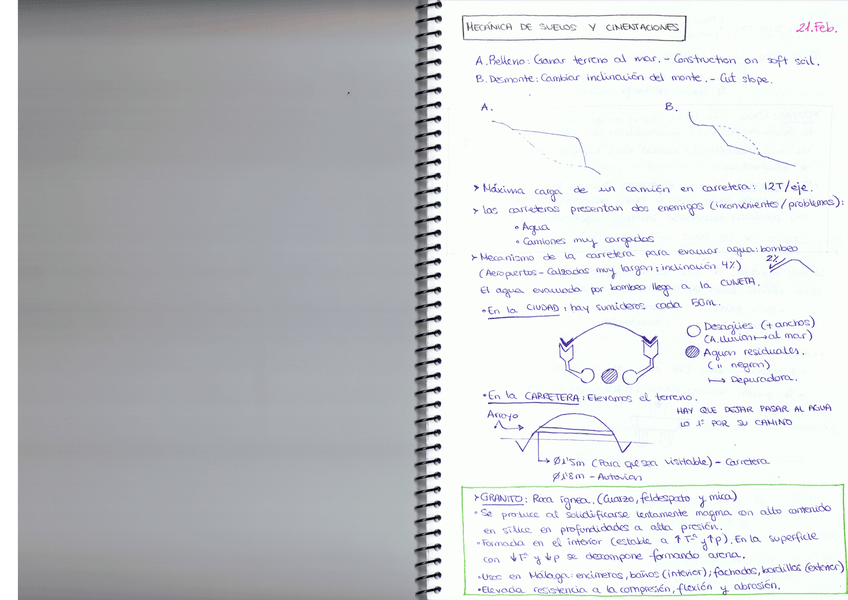 MECÁNICA DE SUELOS Y CIMENTACIONES
21.Feb.
A. Relleno: Ganar terreno al mar. - Construction on soft soil.
B. Desmonte: Cambiar inclinación del monte. - Cut slope.
A.
B.
> Máxima carga de un camión en carretera: 12T/eje.
> Las carreteras presentan dos enemigos (inconvenientes/problemas):
• Agua
• Camiones muy cargados
> Mecanismo de la carretera para evacuar agua: bombeo
(Aeropuertos - Calzadas muy largas; inclinación 4%)
2%
El agua evacuada por bombeo llega a la CUNETA.
• En la CIUDAD: hay sumideros cada 50m.
Desagües (+ anchos)
(A. lluvia ↦ al mar)
Aguas residuales.
( " negras)
↦ Depuradora.
• En la CARRETERA: Elevamos el terreno.
Arroyo
HAY QUE DEJAR PASAR AL AGUA
LO 1º POR SU CAMINO
Ø1'5m (Para que sea visitable) - Carretera
Ø1'8m - Autovías
> GRANITO: Roca ígnea. (Cuarzo, feldespato y mica)
• Se produce al solidificarse lentamente magma con alto contenido
en sílice en profundidades a alta presión.
• Formada en el interior (estable a ↑Tª y ↑p). En la superficie
con ↓Tª y ↓p se descompone formando arena.
• Usos en Málaga: encimeras, baños (interior); fachadas, bordillos (exterior)
• Elevada resistencia a la compresión, flexión y abrasión.